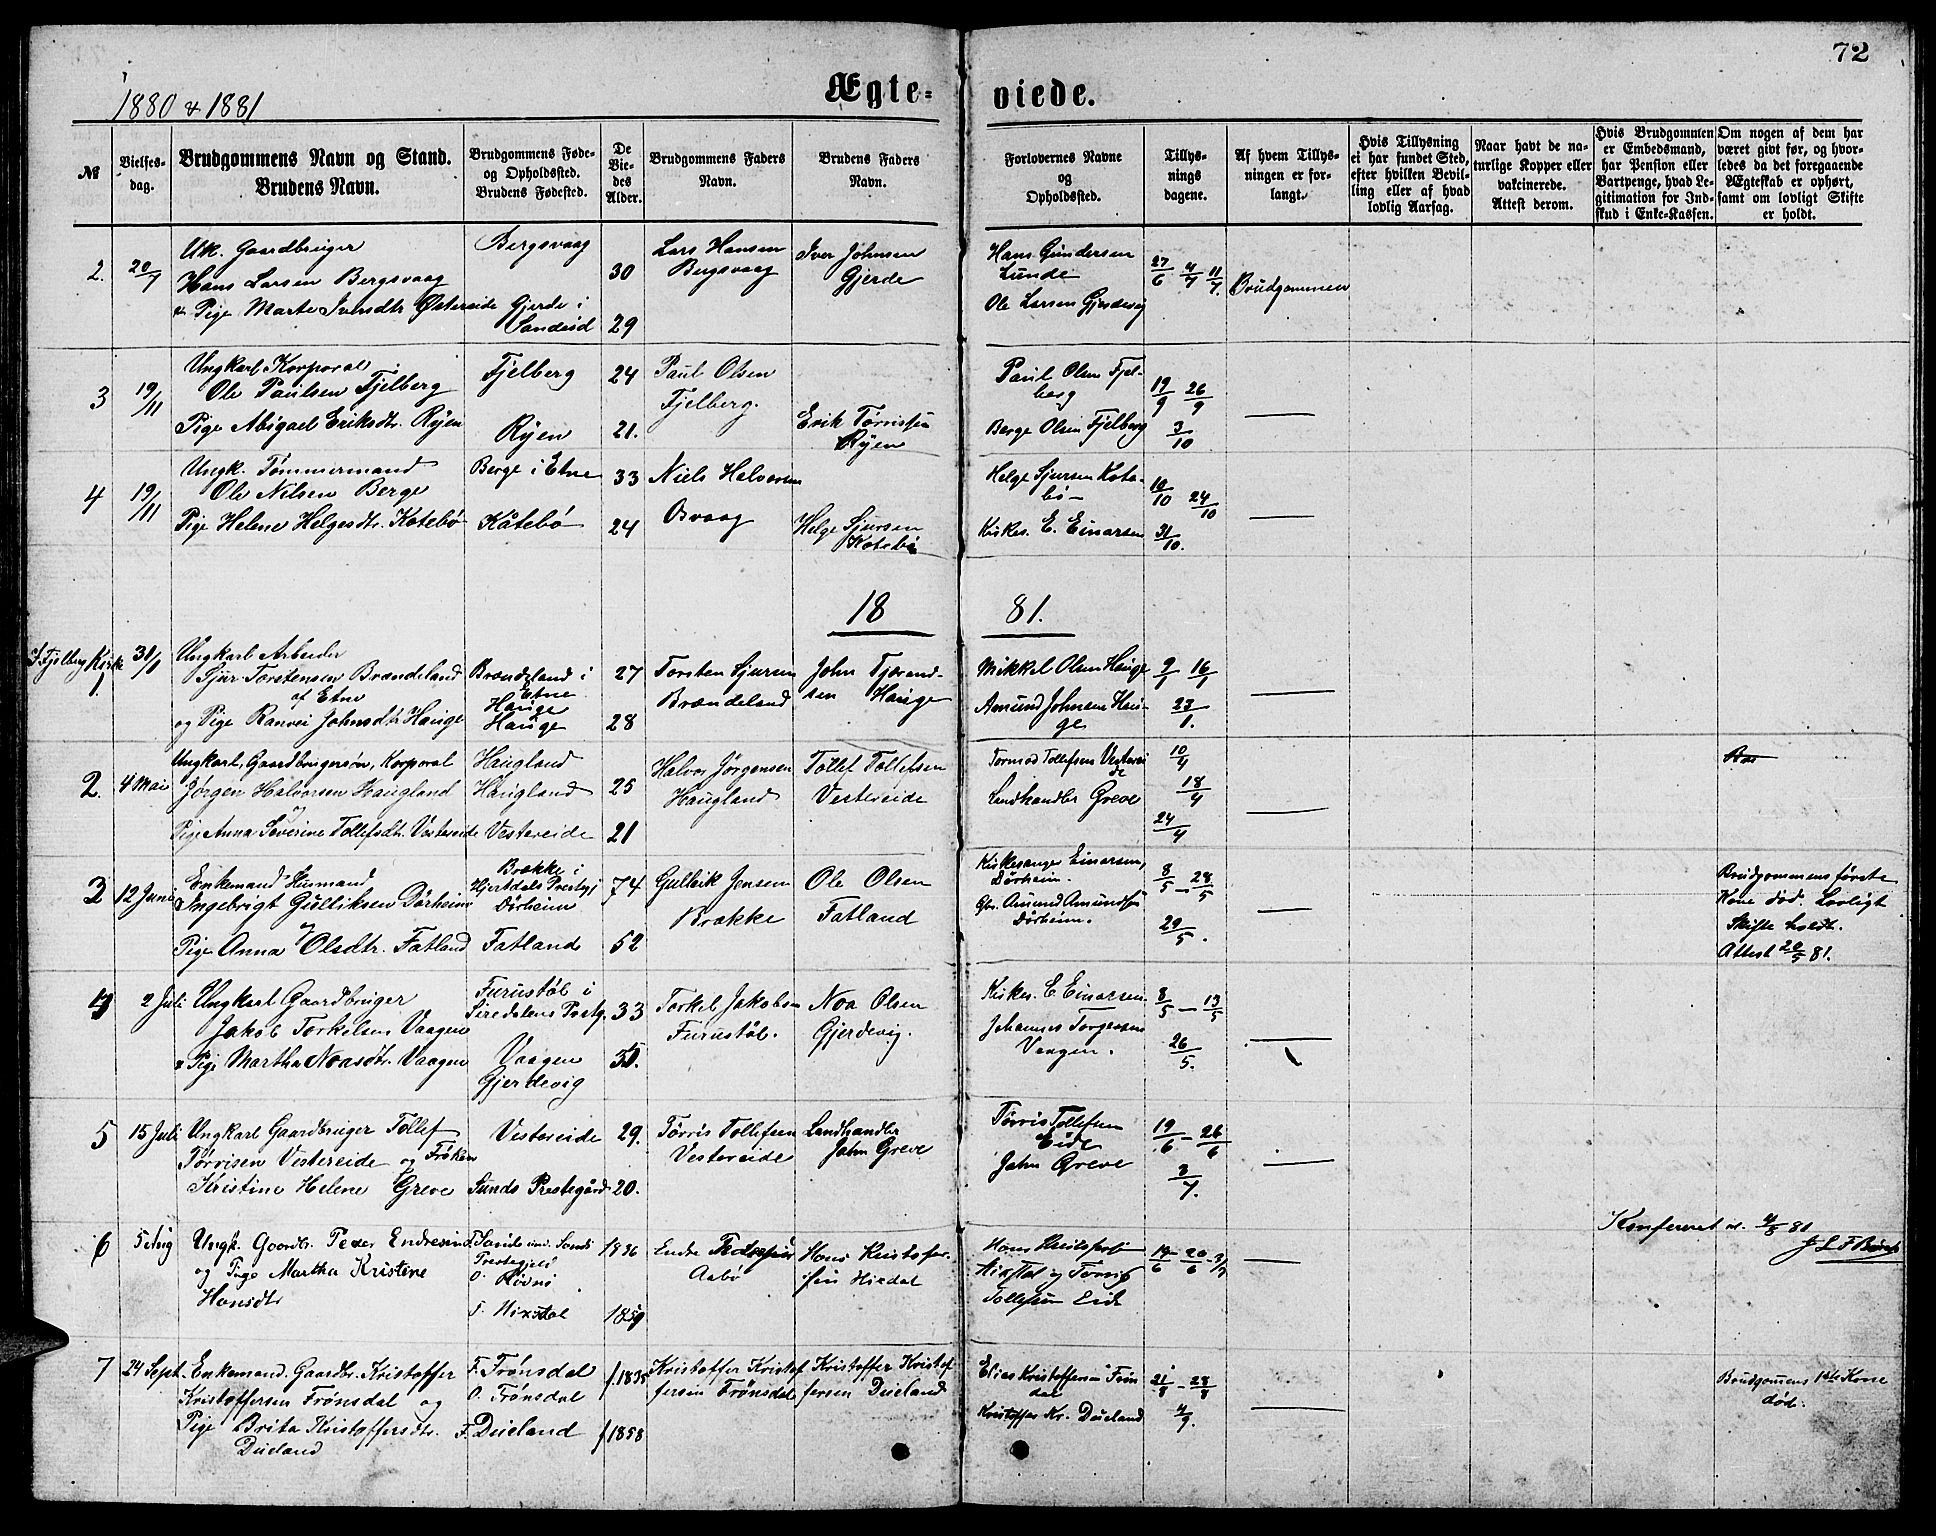 72
1880 & 1881
Ægte=
viede.
№
Vielses-
dag.
Brudgommens Navn og Stand.
Brudens Navn.
Brudgommens Føde-
og Opholdssted.
Brudens Fødested.
De
Vie-
des
Alder.
Brudgommens Faders
Navn.
Brudens Faders
Navn.
Forlovernes Navne
og
Opholdssted.
Tillys-
nings
dagene.
Af hvem Tillys-
ningen er for-
langt.
Hvis Tillysning
ei har fundet Sted,
efter hvilken Bevil-
ling eller af hvad
lovlig Aarsag.
Naar havt de na-
turlige Kopper eller
vakcinerede.
Attest derom.
Hvis Brudgommen
er Embedsmand,
har Pension eller
Vartpenge, hvad Le-
gitimation for Ind-
skud i Enke-Kassen.
Om nogen af dem har
været givt før, og hvor-
ledes da det foregaaende
Ægteskab er ophørt,
samt om lovligt Skifte
er holdt.
2. 20/7
Uk. Gaardbruger
Hans Larsen Bergsvaag
& Pige Marte Iversdtr Østereide
Bergsvaag
Gjerde i
Sandeid
30
29
Lars Hansen
Bergsvaag
Iver Johnsen
Gjerde
Hans Gundersen
Lunde
Ole Larsen Gjerdevig
27/6 4/7 11/7.
Brudgommen
3 19/11
Ungkarl Korporal
Ole Paulsen Fjelberg
Pige Abigael Eriksdtr. Ryen
Fjelberg
Ryen
24
21.
Paul Olsen
Fjelberg.
Erik Tørrissen
Ryen
Paul Olsen Fjel-
berg
Berge Olsen Fjelberg
19/9 26/9
3/10
4 19/11
Ungk. Tømmermand
Ole Nilsen Berge
Pige Helene Helgesdtr. Kotebø
Berge i Etne
Kåtebö
33
24
Niels Halvorsen
Osvaag
Helge Sjursen
Kotebö
Helge Sjursen Kote-
bö
Kirkes. E. Einarsen
10/10 24/10
31/10.
18 81.
I Fjelberg Kirke
1
30/1
Ungkarl Arbeider
Sjur Torstensen Brændeland
af Etne
og Pige Ranvei Johnsdtr. Hauge
Brændeland i
Etne
Hauge
Hauge
27
28
Torsten Sjursen
Brændeland
John Tjærand-
sen Hauge
Mikkel Olsen Hauge
Amund Johnsen Hau-
ge
9/1 16/1
23/1.
2. 4 Mai
Ungkarl, Gaardbrugersøn, Korporal
Jørgen Halvorsen Haugland
og
Pige Anna Severine Tollefsdtr. Vestereide
Haugland
Haugland
Vestereide
25
21
Halvor Jørgensen
Haugland
Tollef Tollefsen
Vestereide
Tormod Tollefsen Vesterei
de
Landhandler Greve
10/4
18/4
24/4
3 12 Juni
Enkemand Husmand
Ingebrigt Gulliksen Dørheim
og
Pige Anna Olsdtr. Fatland
Brække i
Hjertdals Prestegj
Dørheim
Fatland
74
52
Gullik Jensen
Brække
Ole Olsen
Fatland
Kirkesanger Einarsen,
Dørheim.
Gbr. Amund Amundsen
Dørheim.
8/5 - 28/5
29/5.
Brudgommens første
Kone død. Lovligt
Skifte holdt.
Attest 20/5 81.
4 2 Juli
Ungkarl Gaardbruger
Jakob Torkelsen Vaagen
& Pige Martha Noasdtr. Vaagen
Furustöl i
Siredalens Prestg.
Vaagen
Gjerdevig
33
Torkel Jakobsen
Furustöl.
Noa Olsen
Gjerdevig.
Kirkes. E Einarsen.
Johannes Torgersen
Vaagen.
8/5 - 13/5
26/5.
5 15 Juli
Ungkarl Gaardbruger Tollef
Tørrisen Vestereide og Frøken
Kristine Helene Greve
Vestereide
Sunds Prestegård
29.
20.
Tørris Tollefsen
Vestereide
Landhandler
John Greve
Tørris Tollefsen
Eide
John Greve
19/6 - 26/6
3/7.
6 5 Aug
Ungk. Gaardbr. Peder Endresen
og Pige Martha Kristene
Hansdtr
Prestegjeld
1859
Endre
Aabø
Hans Kristoffer-
sen Hixdal
Tollefsen Eide
19/6 - 26/6 - 3/7
Konfereret
81
7 24 Sept
Enkemand. Gaardbr. Kristoffer
Kristoffersen Frønsdal og
Pige Brita Kristoffersdtr.
Dueland
F. Frønsdal
O. Frønsdal
F. Dueland
f. 1835
f 1858
Kristoffer Kristof
fersen Frønsdal
Kristoffer Kristof-
fersen Dueland
Elias Kristoffersen Frøn
dal
Kristoffer Kr. Dueland
21/8 - 28/8
4/9.
Brudgomens 1ste Kone
död.